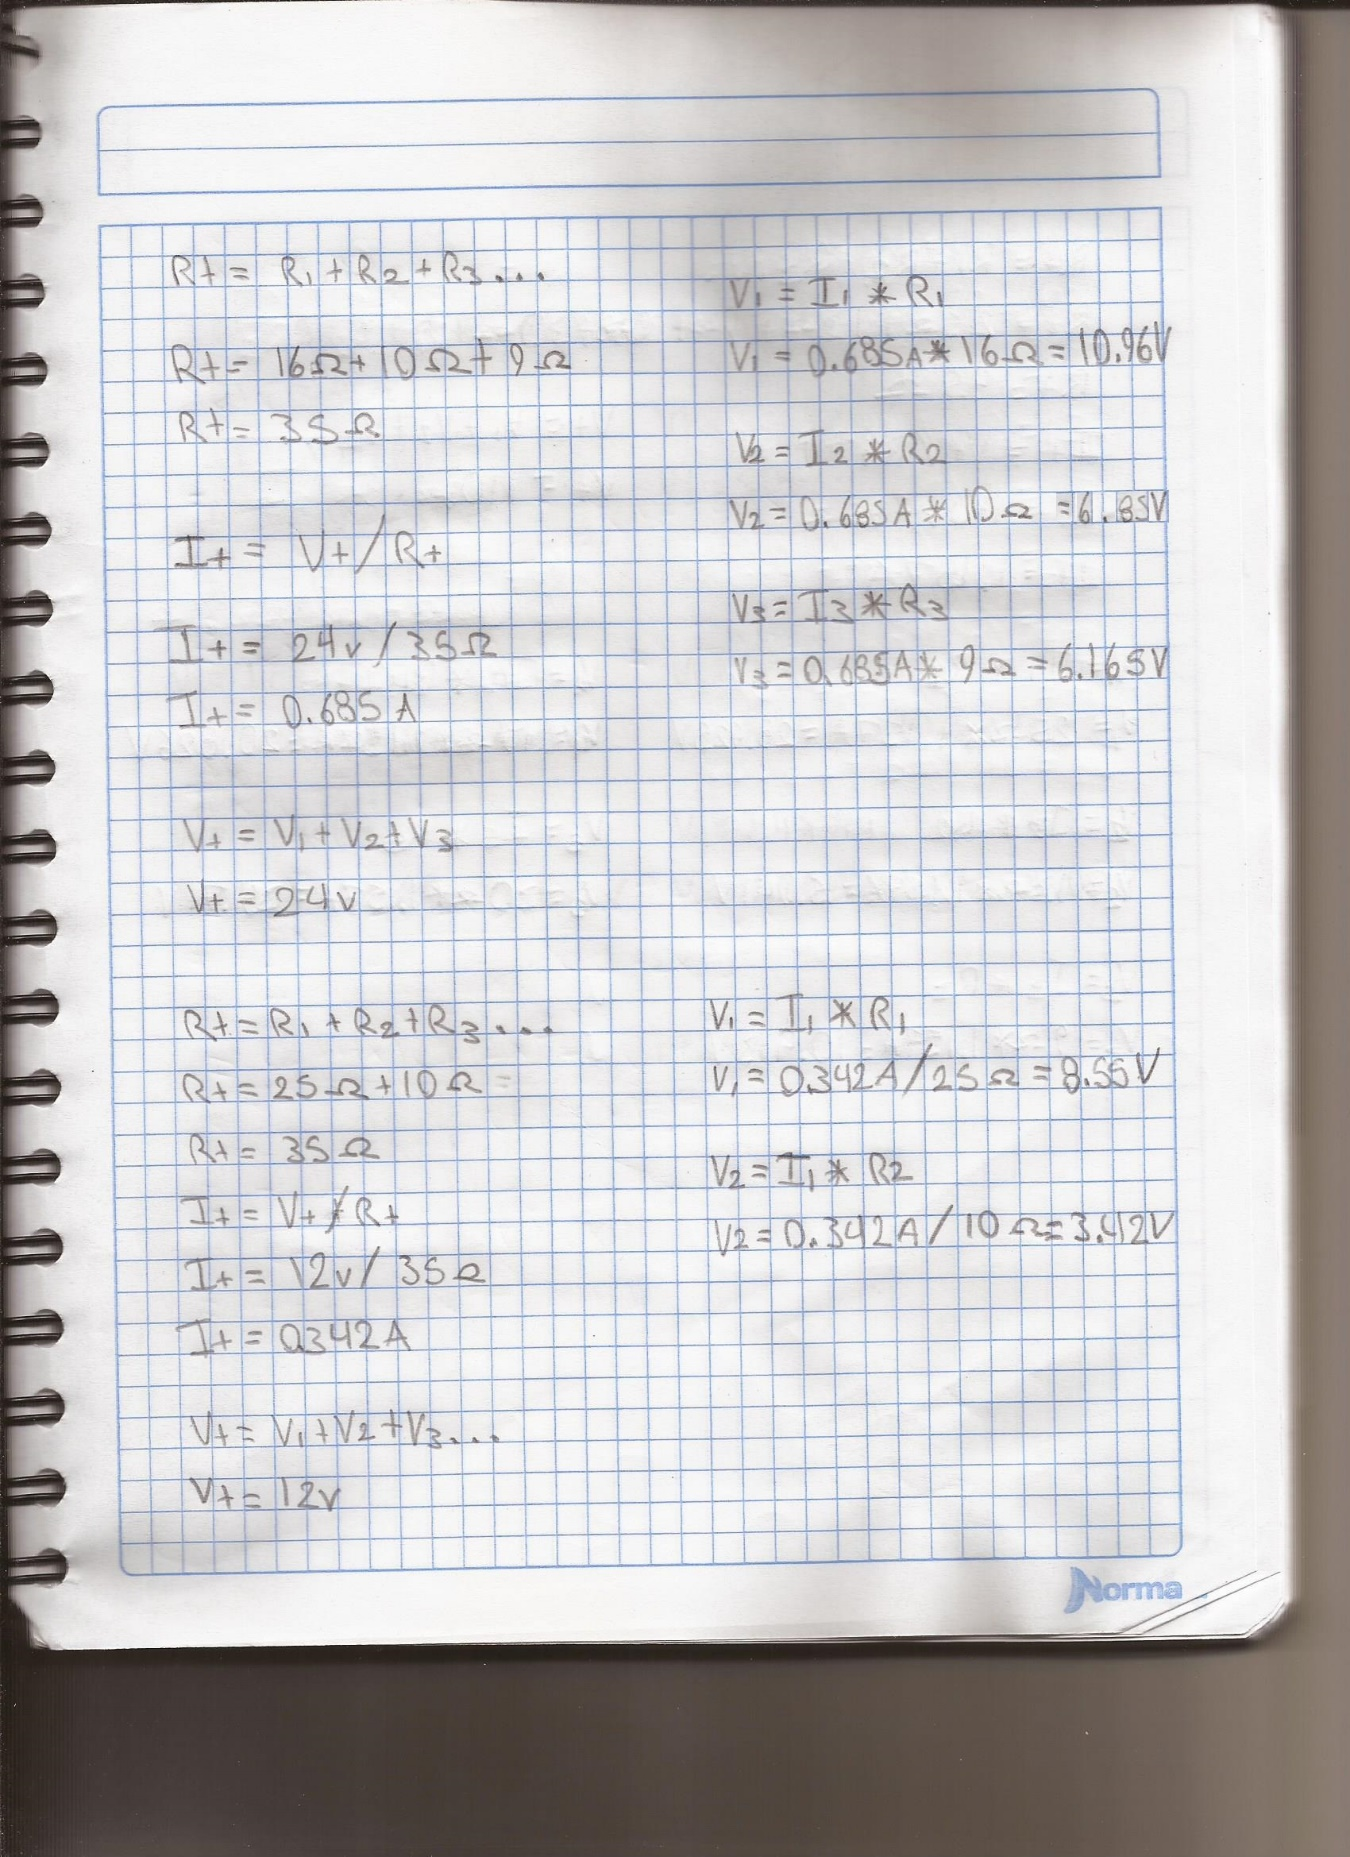 Rt = R1 + R2 + R3...
Rt = 16Ω + 10Ω + 9Ω
Rt = 35Ω
It = Vt / Rt
It = 24v / 35Ω
It = 0.685 A
Vt = V1 + V2 + V3
Vt = 24v
V1 = I1 * R1
V1 = 0.685A * 16Ω = 10.96V
V2 = I2 * R2
V2 = 0.685A * 10Ω = 6.85V
V3 = I3 * R3
V3 = 0.685A * 9Ω = 6.165V
Rt = R1 + R2 + R3...
Rt = 25Ω + 10Ω =
Rt = 35Ω
It = Vt / Rt
It = 12v / 35Ω
It = 0.342A
Vt = V1 + V2 + V3...
Vt = 12v
V1 = I1 * R1
V1 = 0.342A / 25Ω = 8.55V
V2 = I1 * R2
V2 = 0.342A / 10Ω = 3.42V
Norma